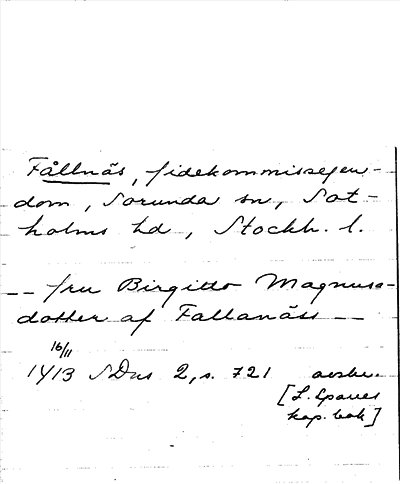 Fållnäs, fidekommissegen-
dom, Sorunda sn, Sot-
holms hd, Stockh. l.
-- fru Birgitto Magnus-
dotter af Fallanäss --
16/11
1413 SDns 2, s. 721 avskr.
[L. Sparres
kop. bok]